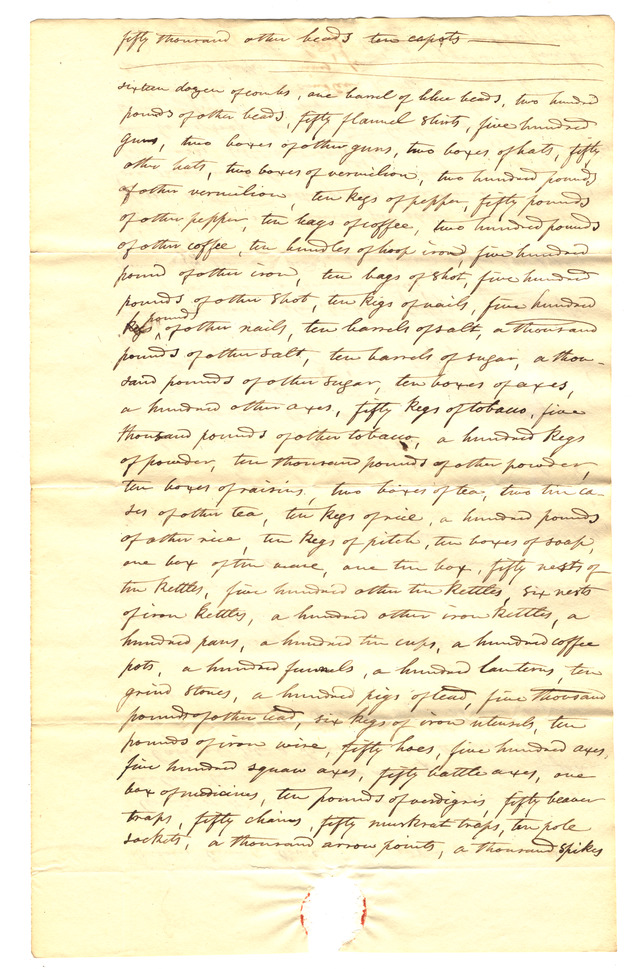 fifty thousand other beads ten capots
sixteen dozen of combs, one barrel of blue beads, two hundred
pounds of other beads, fifty flannel shirts, five hundred
guns, two boxes of other guns, two boxes of hats, fifty
other hats, two boxes of vermilion, two hundred pounds
of other vermilion, ten kegs of pepper, fifty pounds
of other pepper, ten bags of coffee, two hundred pounds
of other coffee, ten bundles of hoop iron, five hundred
pound of other iron, ten bags of shot, five hundred
pounds of other shot ten kegs of nails, five hundred
pounds, of other nails, ten barrels of salt, a thousand
pounds of other salt, ten barrels of sugar, a thou-
sand pounds of other sugar, ten boxes of axes,
a hundred other axes, fifty kegs of tobacco, five
thousand pounds of other tobacco, a hundred kegs
of powder, ten thousand pounds of other powder,
ten boxes of raisins, two boxes of tea, two tin ca-
ses of other tea, ten kegs of rice, a hundred pounds
of other rice, ten kegs of pitch, ten boxes of soap,
one box of tin ware, one tin box, fifty nests of
tin kettles, five hundred other tin kettles, six nests
of iron kettles, a hundred other iron kettles, a
hundred pans, a hundred tin cups, a hundred coffee
pots, a hundred funnels, a hundred lanterns, ten
grind stones, a hundred pigs of lead, five thousand
pounds of other lead, six kegs of iron utensils, ten
pounds of iron wire, fifty hoes, five hundred axes,
five hundred squaw axes, fifty battle axes, one
box of medicines, ten pounds of verdigris, fifty beaver
traps, fifty chains, fifty muskrat traps, ten pole
sockets, a thousand arrow points, a thousand spikes